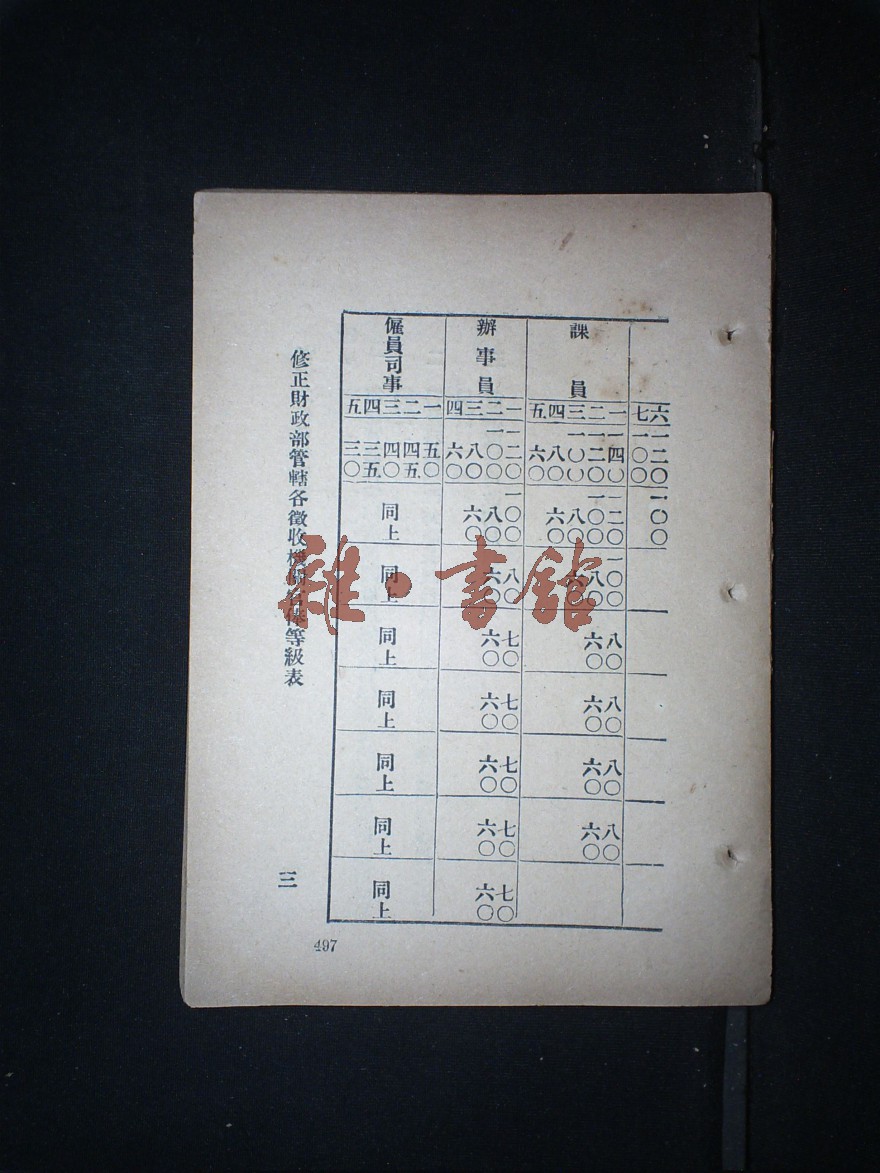 六 七
一二〇 一〇〇
一〇〇
課員
一 二 三 四 五
一四〇 一二〇 一〇〇 八〇 六〇
一二〇 一〇〇 八〇 六〇
一〇〇 八〇 六〇
八〇 六〇
八〇 六〇
八〇 六〇
八〇 六〇
辦事員
一 二 三 四
一二〇 一〇〇 八〇 六〇
一〇〇 八〇 六〇
八〇 六〇
七〇 六〇
七〇 六〇
七〇 六〇
七〇 六〇
七〇 六〇
僱員司事
一 二 三 四 五
五〇 四五 四〇 三五 三〇
同上
同上
同上
同上
同上
同上
同上
修正財政部管轄各徵收機關官俸等級表
三
497
雜·書館